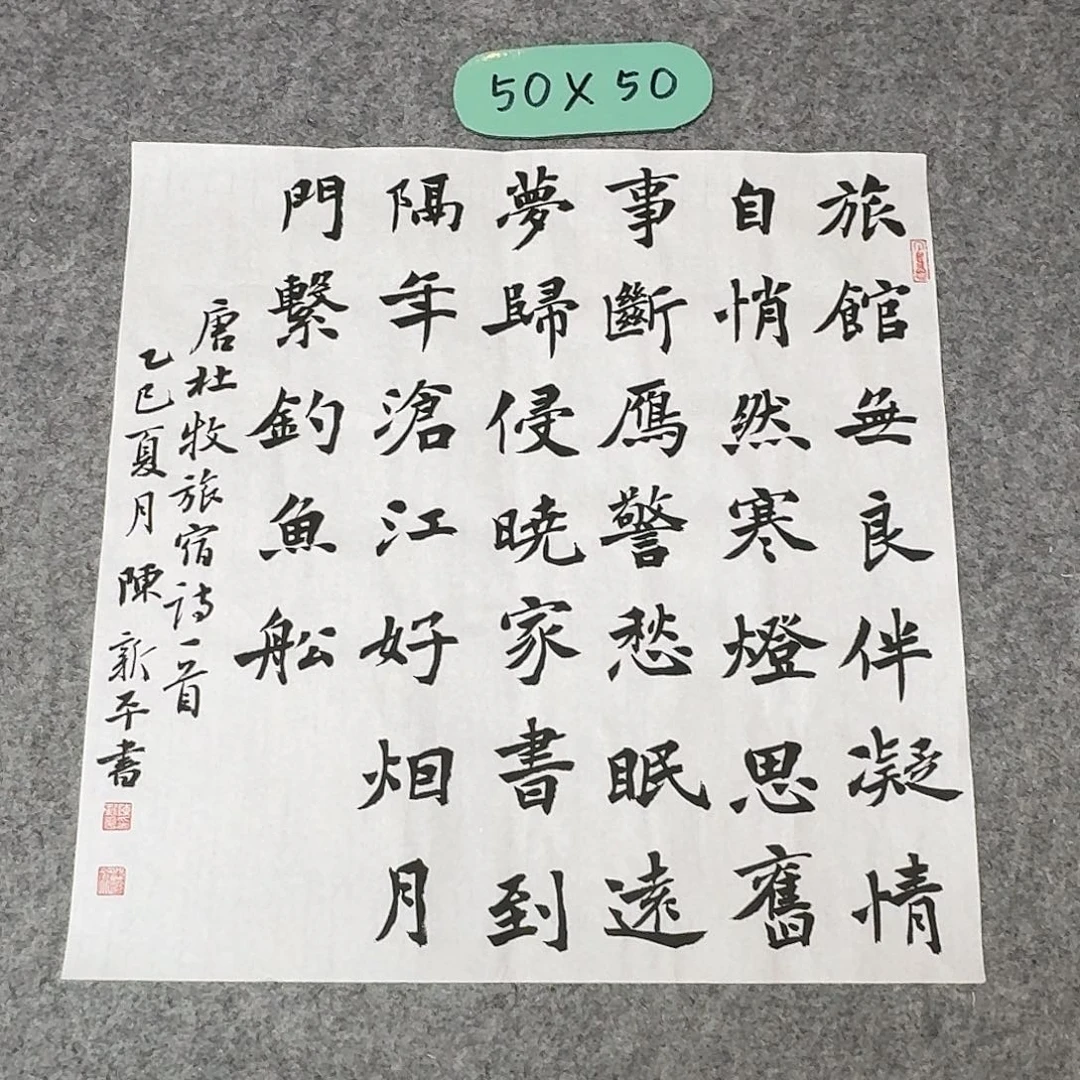 50×50
旅館無良伴凝情
自悄然寒燈思舊
事斷鴈警愁眠遠
夢歸侵曉家書到
隔年滄江好烟月
門繫釣魚船
唐杜牧旅宿诗一首
乙巳夏月陳新平書